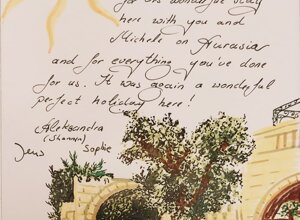 for this wonderful stay
here with you and
Michele on Aurasia
and for everything you've done
for us. It was again a wonderful
perfect holiday here!
Aleksandra
Jens Sophie